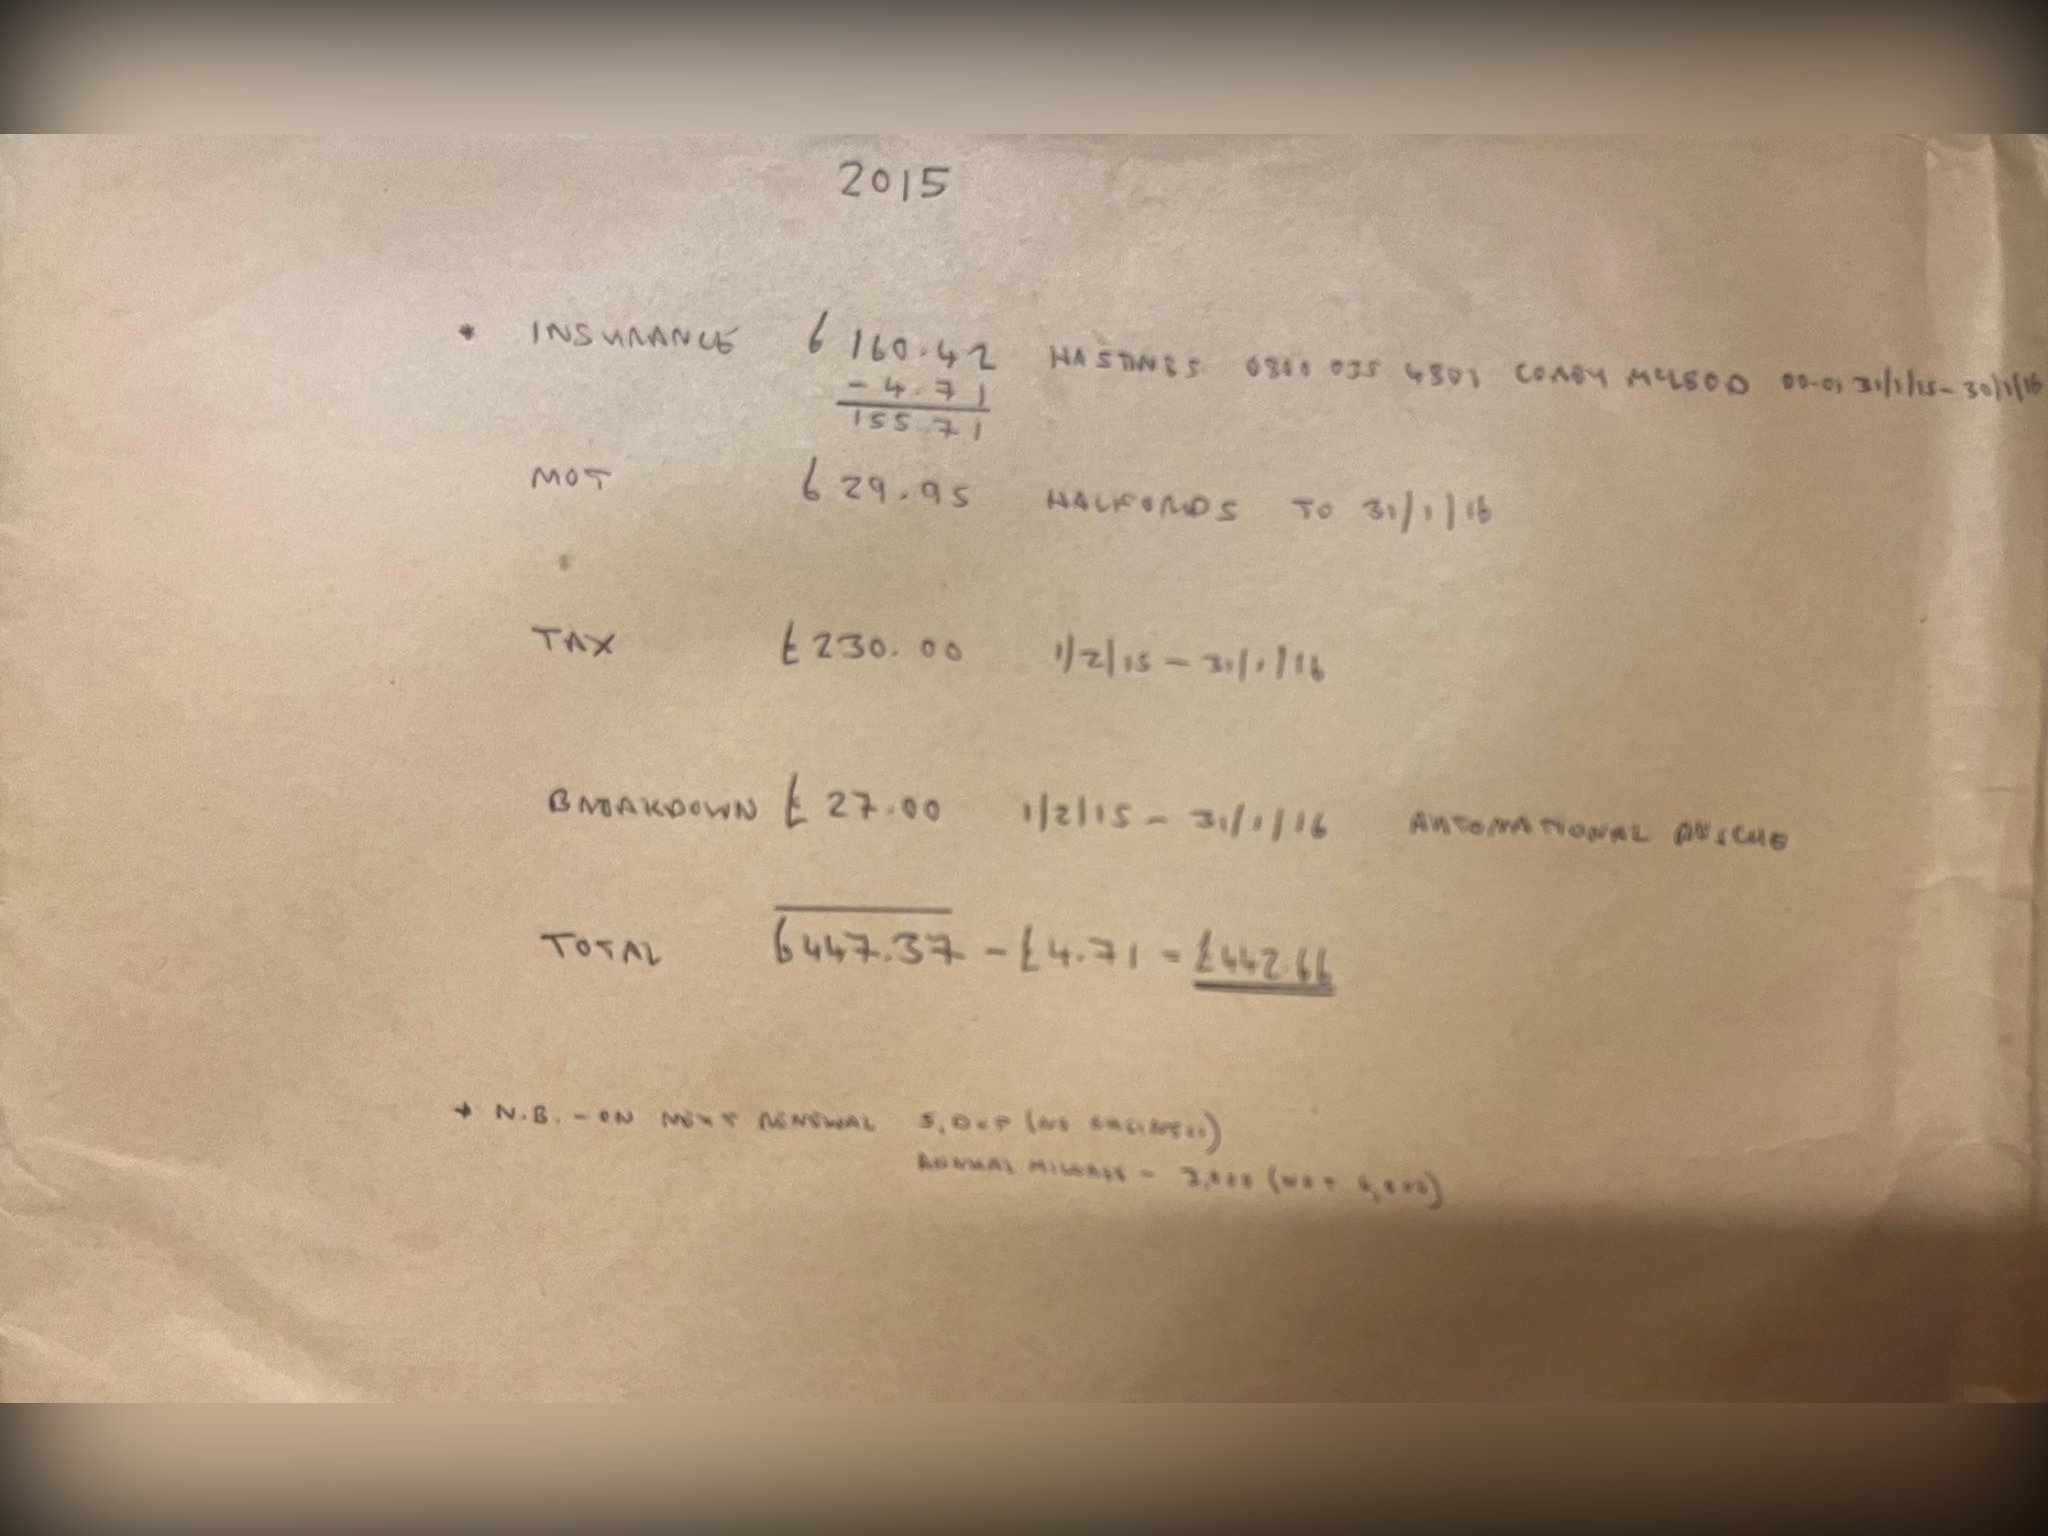 2015
* INSURANCE £160.42 HASTINGS 0800 035 4801 COREY MCLEOD 00.01 31/1/15 - 30/1/16
- 4.71
155.71
MOT £29.95 HALFORDS TO 31/1/16
TAX £230.00 1/2/15 - 31/1/16
BREAKDOWN £27.00 1/2/15 - 31/1/16 AUTONATIONAL RESCUE
TOTAL £447.37 - £4.71 = £442.66
* N.B. - ON NEXT RENEWAL S, D & P (NO BUSINESS)
ANNUAL MILEAGE - 3,000 (NOT 6,000)